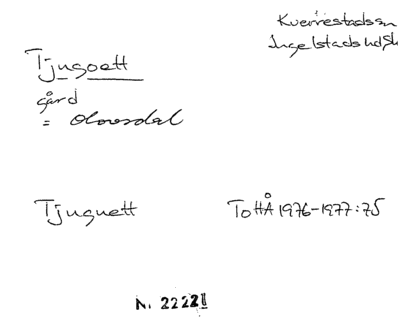 Kverrestads sn
Ingelstads hd Sk
Tjugoett
gård
=
Tjuguett ToHÅ 1976-1977:75
N. 22221